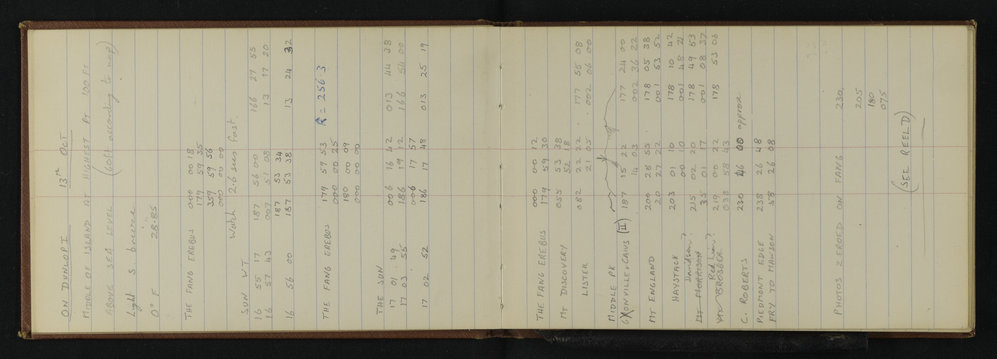 ON DUNLOP I 13th OCT
MIDDLE OF ISLAND AT HIGHEST PT 100 Ft
ABOVE SEA LEVEL (60ft according to map)
Light S breeze
0° F 28.85
THE FANG EREBUS 000 00 18
179 59 35
359 59 56
000 00 00
Watch 2.6 secs fast.
SUN
16 55 17 187 56 00 166 27 53
16 57 43 007 51 08 13 17 20
187 53 34
16 56 00 187 53 38 13 24 32
THE FANG EREBUS 179 59 53 R = 256 3
000 00 25
180 00 09
000 00 00
THE SUN
17 01 49 006 16 42 013 44 38
17 03 55 186 19 12 166 54 00
006 17 57
17 02 52 186 17 48 013 25 19
THE FANG EREBUS 000 00 12
179 59 30
MT DISCOVERY 055 53 38
52 18
LISTER 082 22 22 177 55 08
21 05 002 06 00
MIDDLE PK
GONVILLE & CAIUS (II) 187 15 22 177 24 00
14 03 002 36 22
MT ENGLAND 200 28 50 178 05 38
20 27 22 001 53 52
HAYSTACK 203 01 10 178 10 42
02 00 10 001 48 21
Davidson? 215 02 20 178 49 53
MT MORRISON 35 01 17 001 08 37
Red Lion? 210 00 22 178 53 08
BROSDER 58 43
C. ROBERTS 230 46 00 approx
PIEDMONT EDGE 238 26 48
FRY TO MAWSON 58 26 08
PHOTOS ZEROED ON FANG 230
205
180
075
(SEE REEL D)